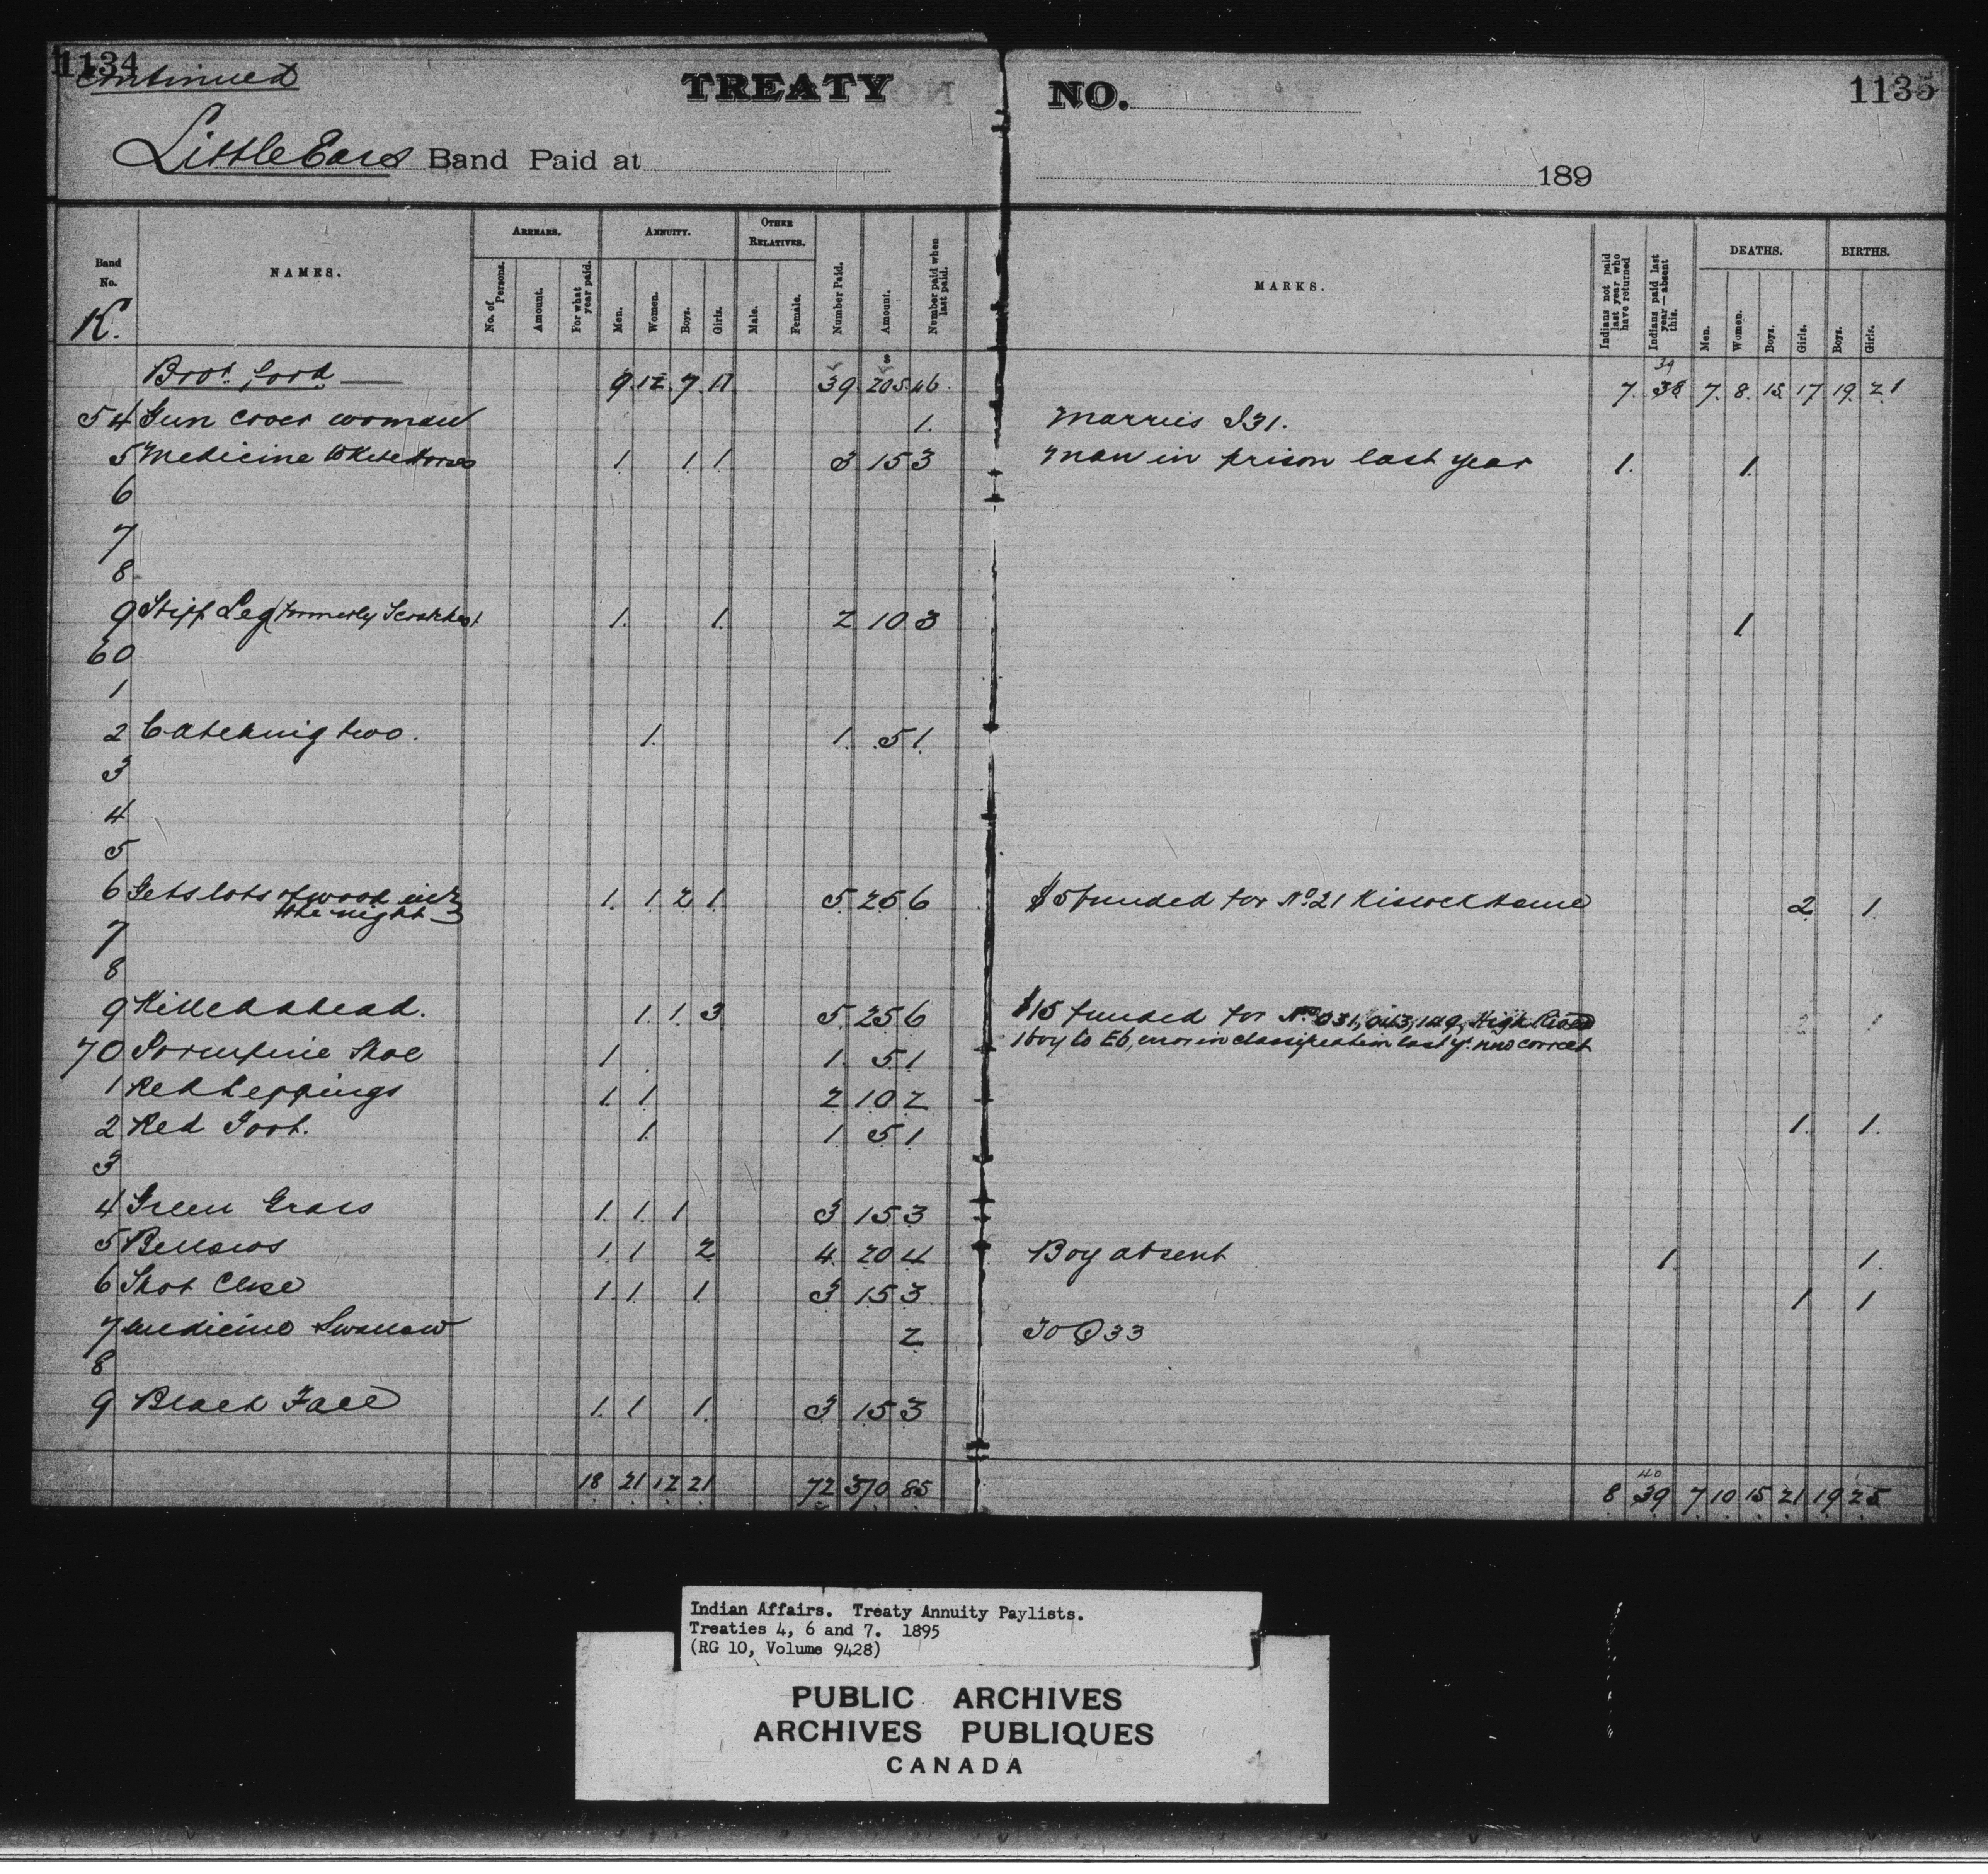 1134
Continued
TREATY NO. 1135
Little Ears Band Paid at 189
Band No. NAMES. ARREARS. ANNUITY. OTHER RELATIVES. Number Paid. Amount. Number paid when last paid. MARKS. Indians not paid last year who have returned Indians paid last year—absent this. DEATHS. BIRTHS.
No. of Persons. Amount. For what year paid. Men. Women. Boys. Girls. Male. Female. Men. Women. Boys. Girls. Boys. Girls.
K.
$ 39
Brot. ford 9. 12. 7. 11 39 205. 46. 7. 38 7. 8. 15 17 19. 21
54 Gun cover woman 1. Marries I31.
5 Medicine White Horses 1. 1. 1. 3 15 3 Man in prison last year 1. 1.
6
7
8
9 Stiff Leg (formerly 1. 1. 2 10 3 1
60
1
2 Catching two. 1. 1. 5 1.
3
4
5
6 Gets lots of wood in the night 1. 1 2 1. 5. 25 6 $5 funded for No 21 2 1.
7
8
9 Killed ahead. 1. 1. 3 5. 25 6 $15 funded for No 031, 043, 149, High River
1 boy to E6, error in classification last yr. now correct
70 Porcupine Shoe 1 1. 5. 1
1 Red Leggings 1. 1 2 10 2
2 Red Foot. 1. 1 5 1 1. 1.
3
4 Green Grass 1. 1. 1 3 15 3
5 Bellows 1. 1 2 4. 20 4 Boy absent 1. 1.
6 Shot Close 1. 1. 1 3 15 3 1 1
7 Medicine Swallow 2 To Q33
8
9 Black Face 1. 1 1. 3 15 3
40
18 21 12 21 72 370 85 8 39 7 10 15 21 19 25
Indian Affairs. Treaty Annuity Paylists.
Treaties 4, 6 and 7. 1895
(RG 10, Volume 9428)
PUBLIC ARCHIVES
ARCHIVES PUBLIQUES
CANADA